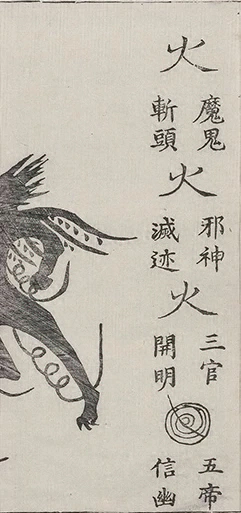 火
魔鬼
斬頭
火
邪神
滅迹
火
三官
開明
五帝
信幽